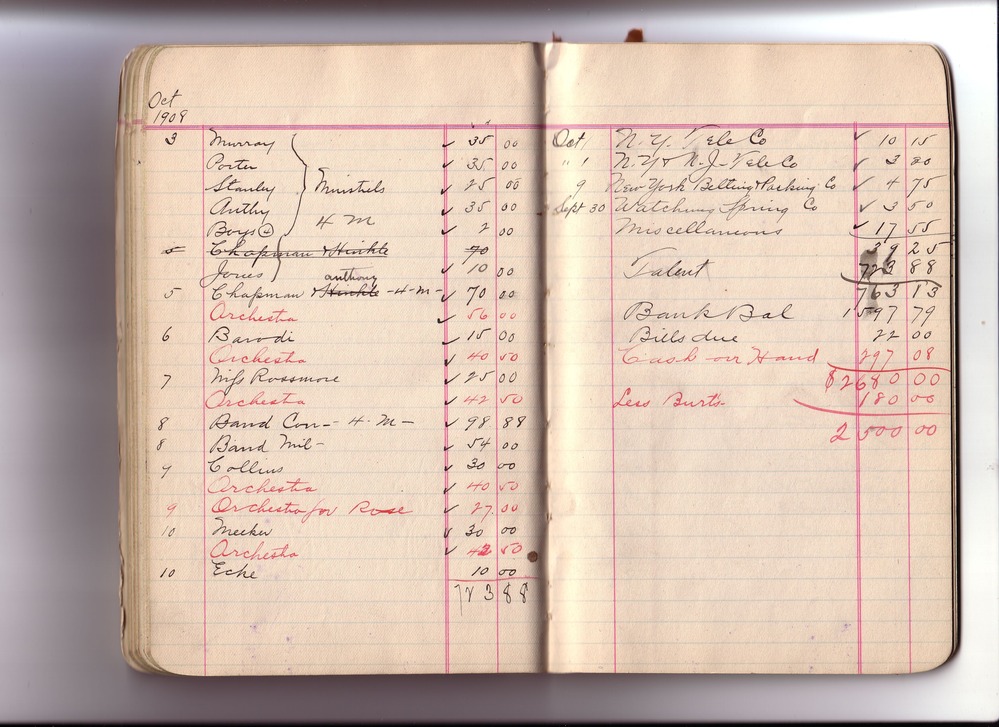 Oct
1908
3 Murray ✓ 35 00
Porter ✓ 35 00
Stanley ✓ 25 00
Anthy ✓ 35 00
Boys ④ ✓ 2 00
Minstrels
4 M
5 Chapman & Hinkle 70
Jones ✓ 10 00
anthony
5 Chapman & Hinkle - 4-M- ✓ 70 00
Orchestra ✓ 56 00
6 Barodi ✓ 15 00
Orchestra ✓ 40 50
7 Miss Rossmore ✓ 25 00
Orchestra ✓ 42 50
8 Band Con- - 4-M- ✓ 98 88
8 Band Mil- ✓ 54 00
9 Collins ✓ 30 00
Orchestra ✓ 40 50
9 Orchestra for Rose ✓ 27.00
10 Meeker ✓ 30 00
Orchestra ✓ 42 50
10 Ecke 10 00
723 88
Oct 1 N. Y. Tele Co ✓ 10 15
" 1 N. Y & N. J- Tele Co ✓ 3 30
9 New York Belting & Packing Co ✓ 4 75
Sept 30 Watchung Spring Co ✓ 3 50
Miscellaneous ✓ 17 55
39 25
Talent 723 88
763 13
Bank Bal 1597 79
Bills due 22 00
Cash on Hand 297 08
$2680 00
Less Burt's- 180 00
2500 00